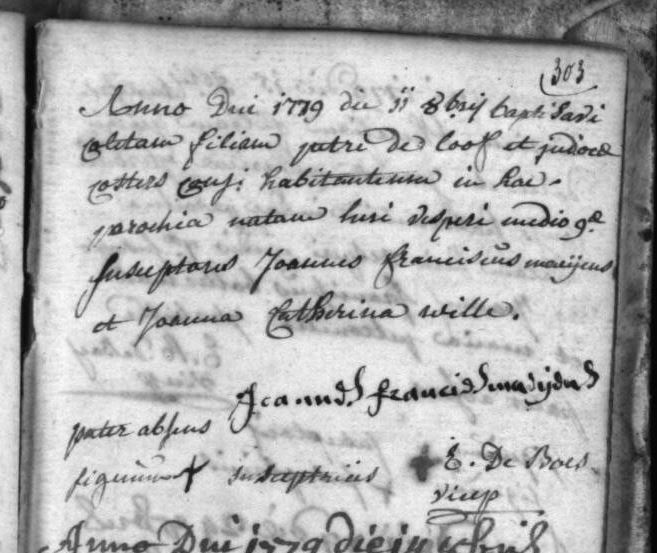 303
Anno Dni 1779 die 11 8bris baptisavi
filiam petri de loof et judoca
costers conj: habitantium in hac
parochia natam heri vesperi medio 9æ
susceptores Joannes franciscus maeijens
et Joanna Catharina wille.
Joannes francies maeijens
pater absens
signum + susceptricis + E. De Boes
vicep
Anno Dni 1779 die 14 8bris